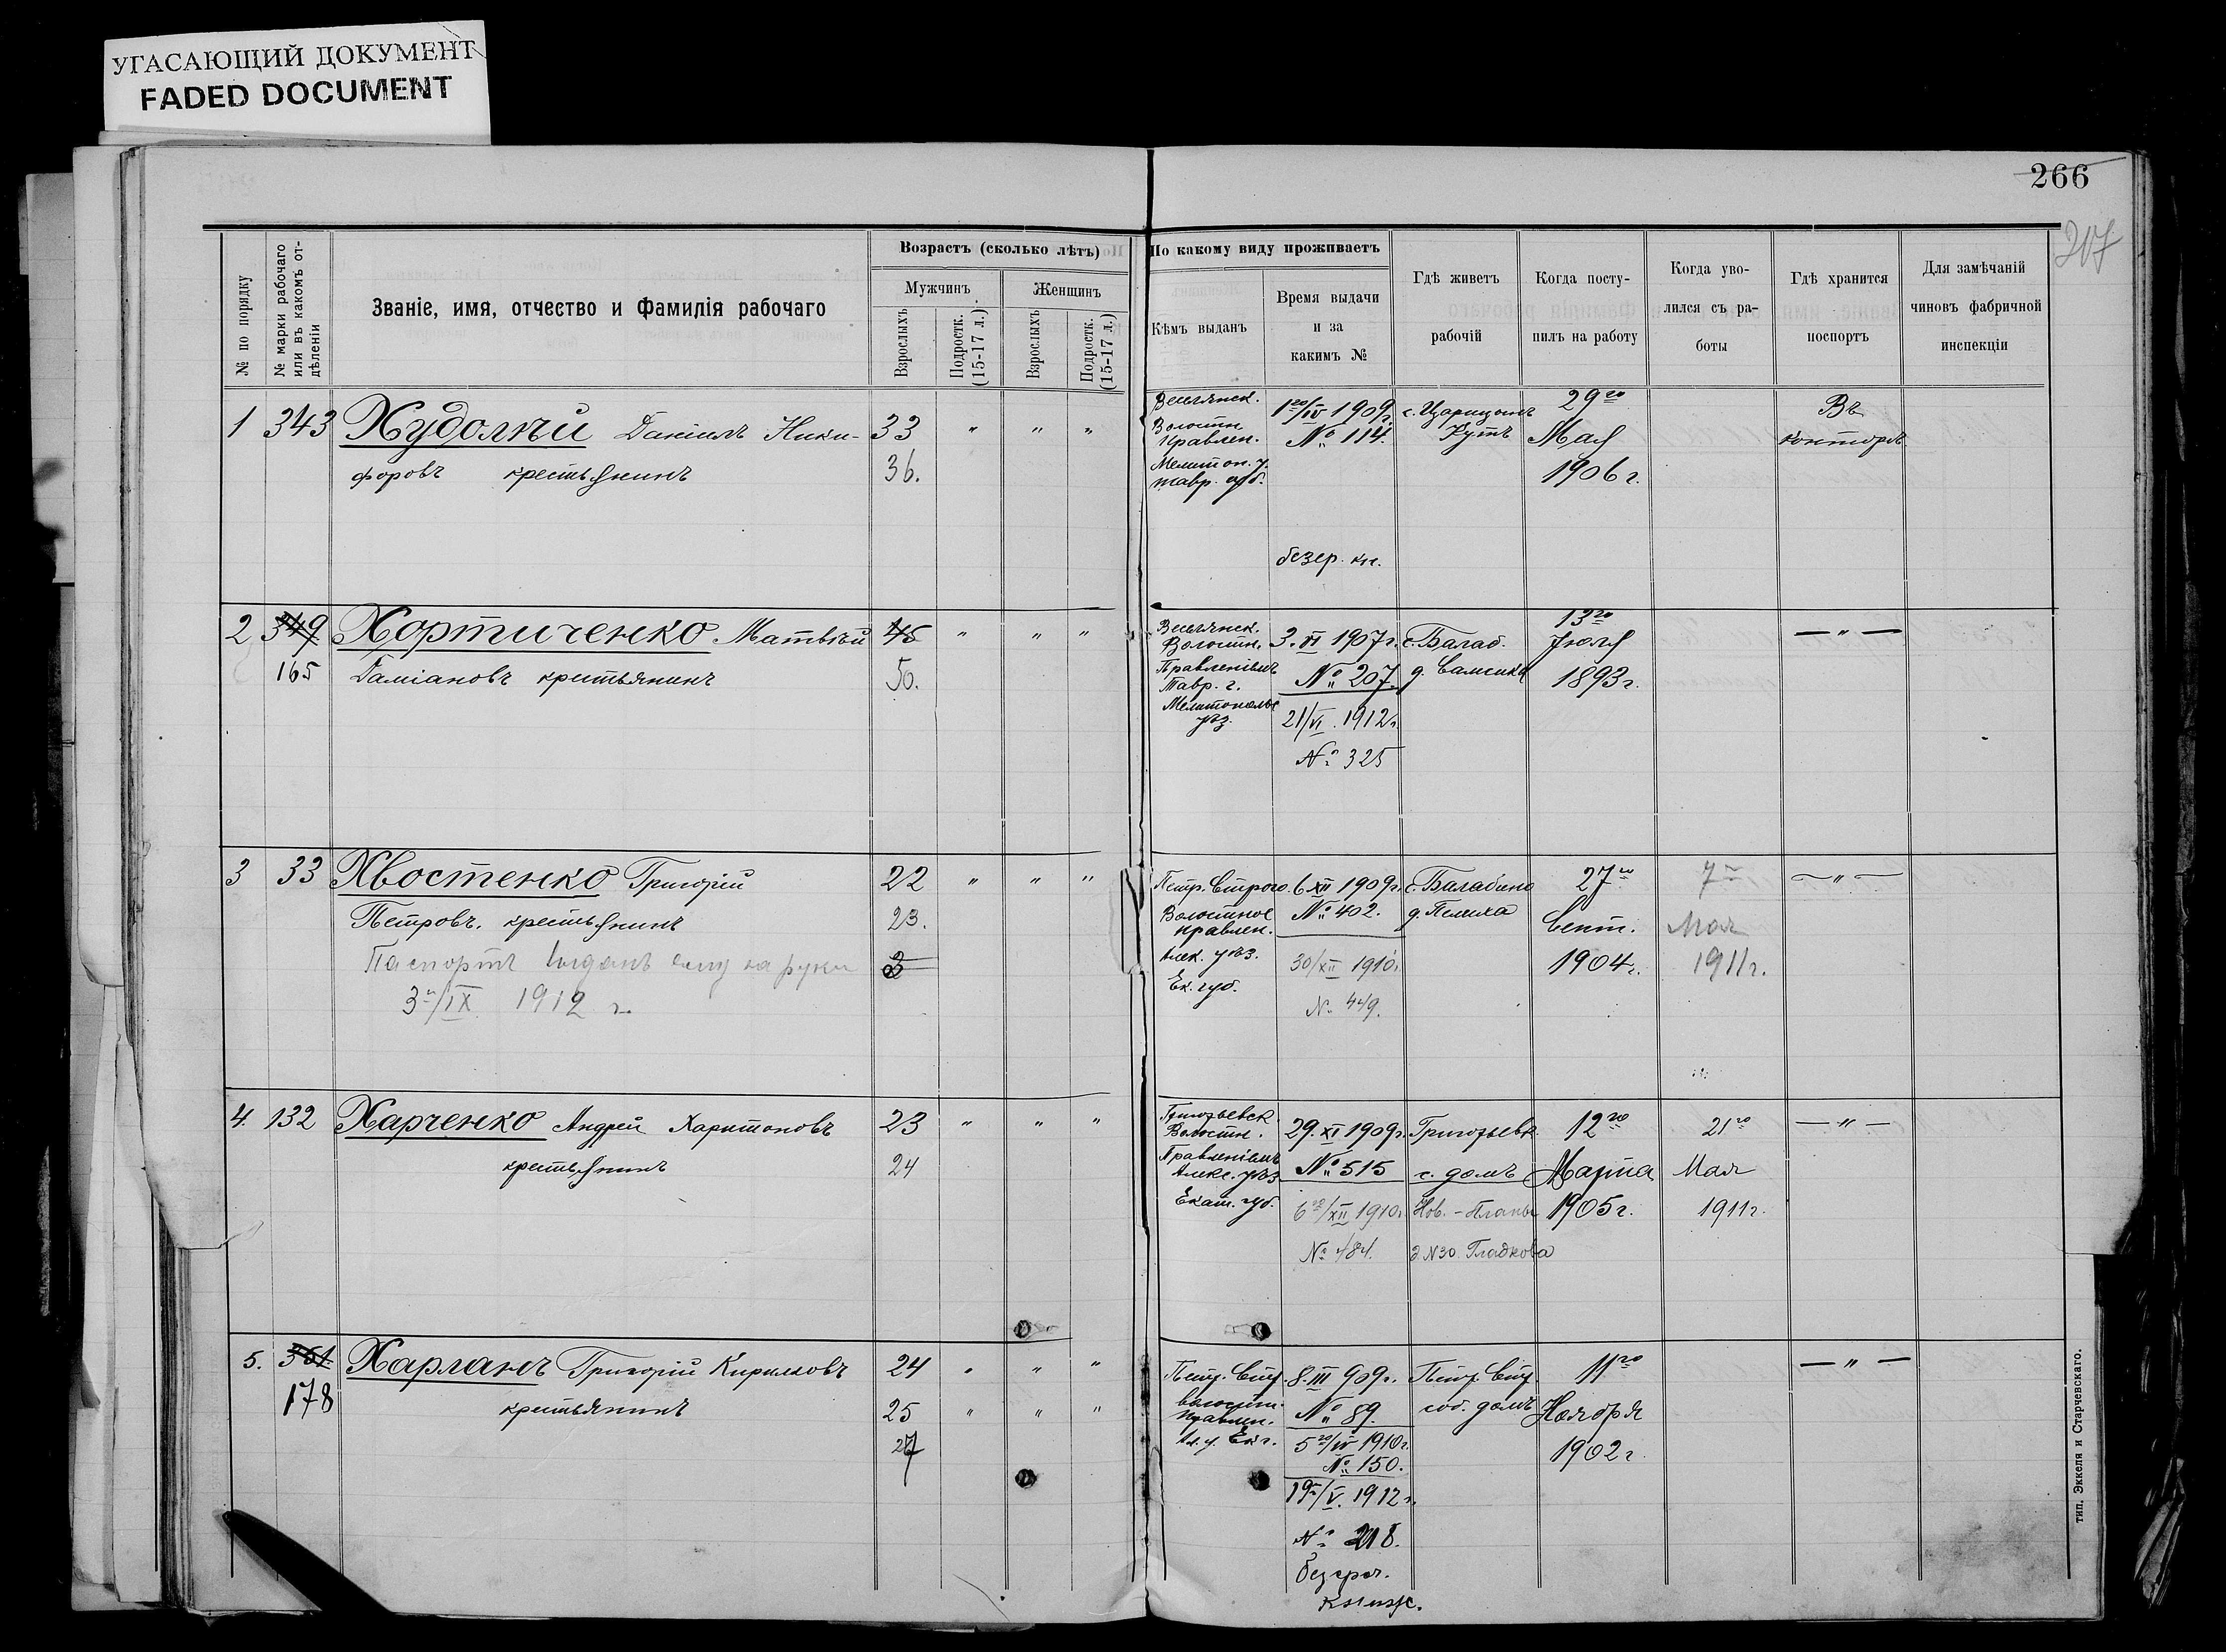 УГАСАЮЩИЙ ДОКУМЕНТ
FADED DOCUMENT
266
217
№ по порядку
№ марки рабочаго
или въ какомъ от-
дѣленіи
Званіе, имя, отчество и Фамилія рабочаго
Возрастъ (сколько лѣтъ)
Мужчинъ
Женщинъ
Взрослыхъ
Подростк.
(15-17 л.)
Взрослыхъ
Подростк.
(15-17 л.)
По какому виду проживаетъ
Кѣмъ выданъ
Время выдачи
и за
какимъ №
Гдѣ живетъ
рабочій
Когда посту-
пилъ на работу
Когда уво-
лился съ ра-
боты
Гдѣ хранится
поспортъ
Для замѣчаній
чиновъ фабричной
инспекціи
1 343 Худолѣй Даніилъ Ники- 33 " " "
форовъ крестьянинъ 36.
Веселянск.
Волостн.
Правлен.
Мелитоп. у.
тавр. губ.
1го/IV 1909г.
№ 114.
безср. кн.
с. Царицынъ
Кутъ
29го
Мая
1906 г.
Въ
конторѣ
2 349 Хортиченко Матвѣй 45 " " "
165 Даміановъ крестьянинъ 50.
Веселянск.
Волостн.
Правленіемъ
Тавр. г.
Мелитопольс
уѣз.
3. XI 1907 г.
№ 207.
21/VI. 1912 г.
№ 325
с. Балаб.
д. Самсика
13го
Іюля
1893 г.
— " —
3 33 Хвостенко Григорій 22 " " "
Петровъ. крестьянинъ 23.
Паспортъ выданъ ему на руки
3го/IX 1912 г.
Петр. Строго.
Волостное
правлен.
Алек. уѣз.
Ек. губ.
6 XII 1909 г.
№ 402.
30/XII 1910 г.
№ 449.
с. Балабино
д. Пелиха
27го
Сент.
1904 г.
7го
Мая
1911 г.
— " —
4. 132 Харченко Андрей Харитоновъ 23 " " "
крестьянинъ 24
Григорьевск.
Волостн.
Правленіемъ
Алекс. уѣз.
Екат. губ.
29. XI 1909 г.
№ 515
6го/XII 1910 г.
№ 484.
Григорьевк.
с. домъ
Нов.-Планы
д №30. Гладкова
12го
Марта
1905 г.
21го
Мая
1911 г.
— " —
5. 361 Харланъ Григорій Кирилловъ 24 " " "
178 крестьянинъ 25 " " "
27
Петр. Стр.
волостн.
правлен.
Ал. у. Ек г.
8. III 909 г.
№ 89.
5го/IV 1910 г.
№ 150.
19го/V. 1912 г.
№ 218.
безсроч.
книж.
Петр. Стр.
соб. домъ
11го
Ноября
1902 г.
— " —
тип. Эккеля и Старчевскаго.